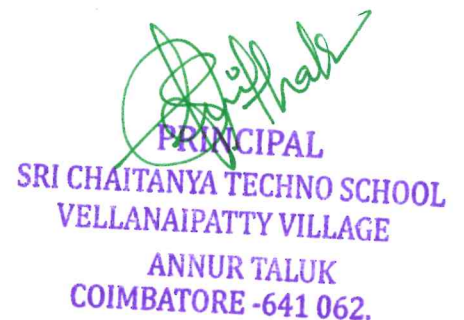 PRINCIPAL
SRI CHAITANYA TECHNO SCHOOL
VELLANAIPATTY VILLAGE
ANNUR TALUK
COIMBATORE -641 062.